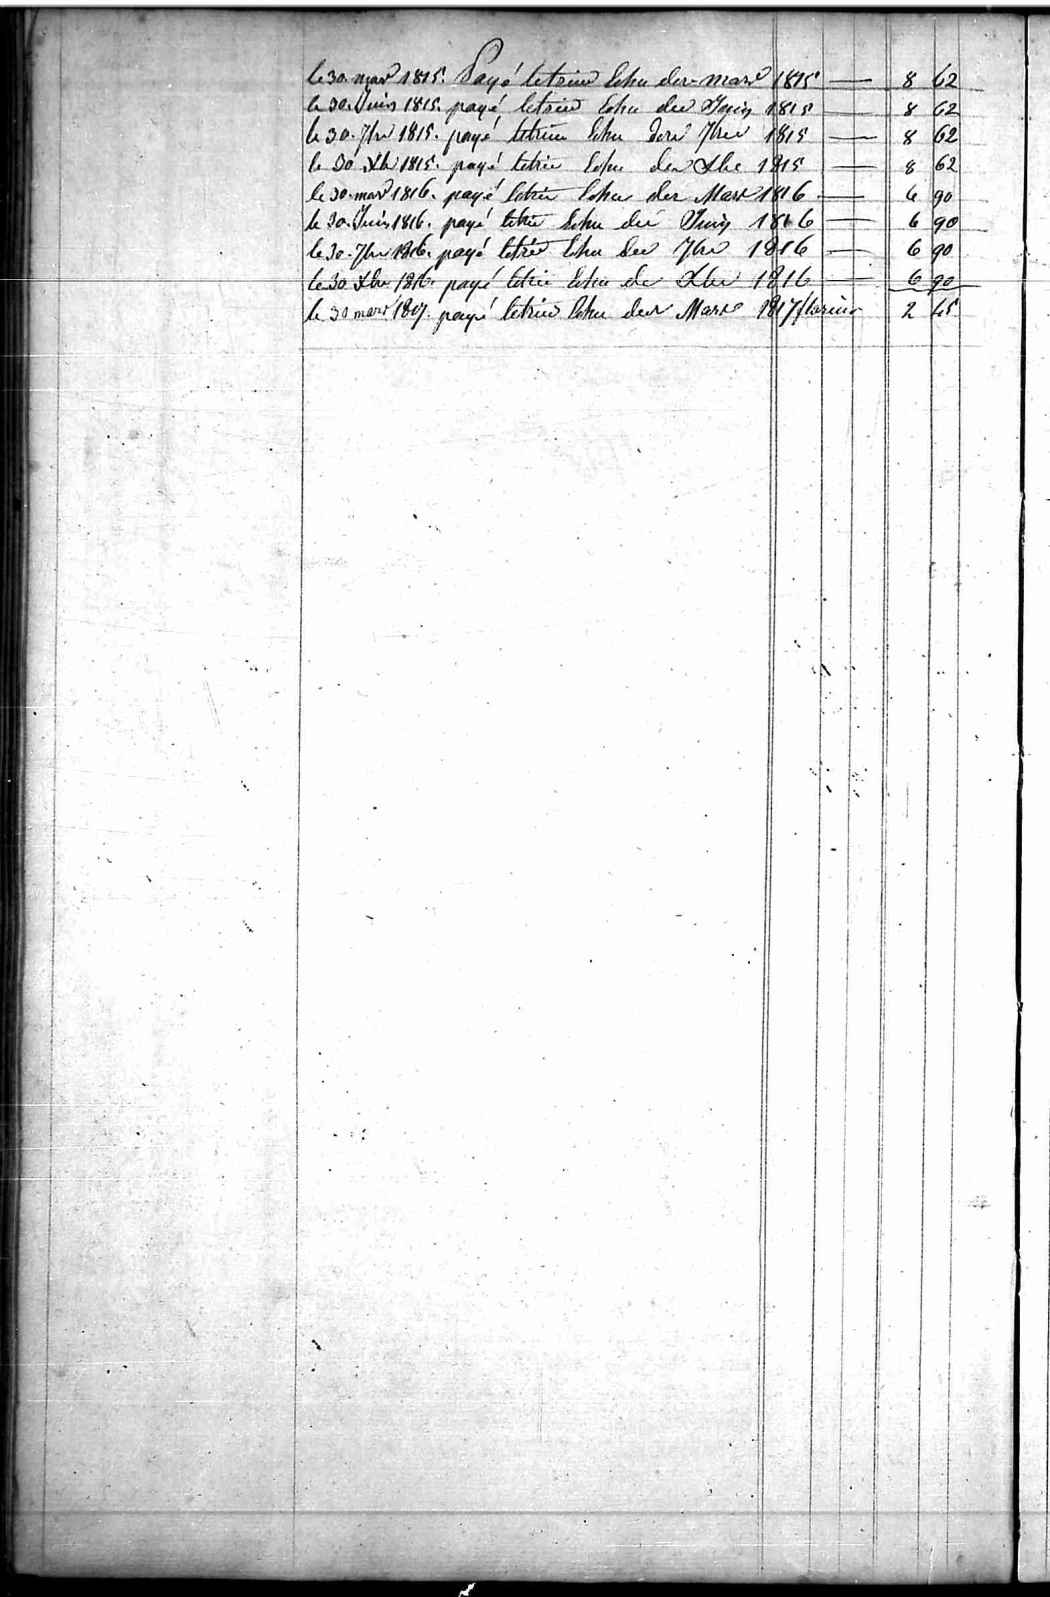 le 30 mars 1815. Payé letrim Echu der mars 1815 — 8 62
le 30 Juin 1815. payé letrim Echu du Juin 1815 — 8 62
le 30 7bre 1815. payé letrim Echu der 7bre 1815 — 8 62
le 30 Xbr 1815. payé letrim Echu der Xbre 1815 — 8 62
le 30 mars 1816. payé letrim Echu der Mars 1816 — 6 90
le 30 Juin 1816. payé letrim Echu du Juin 1816 — 6 90
le 30 7bre 1816. payé letrim Echu der 7bre 1816 — 6 90
le 30 Xbre 1816. payé letrim Echu de Xbre 1816 — 6 90
le 30 mars 1817. payé letrim Echu der Mars 1817 florins 2 45